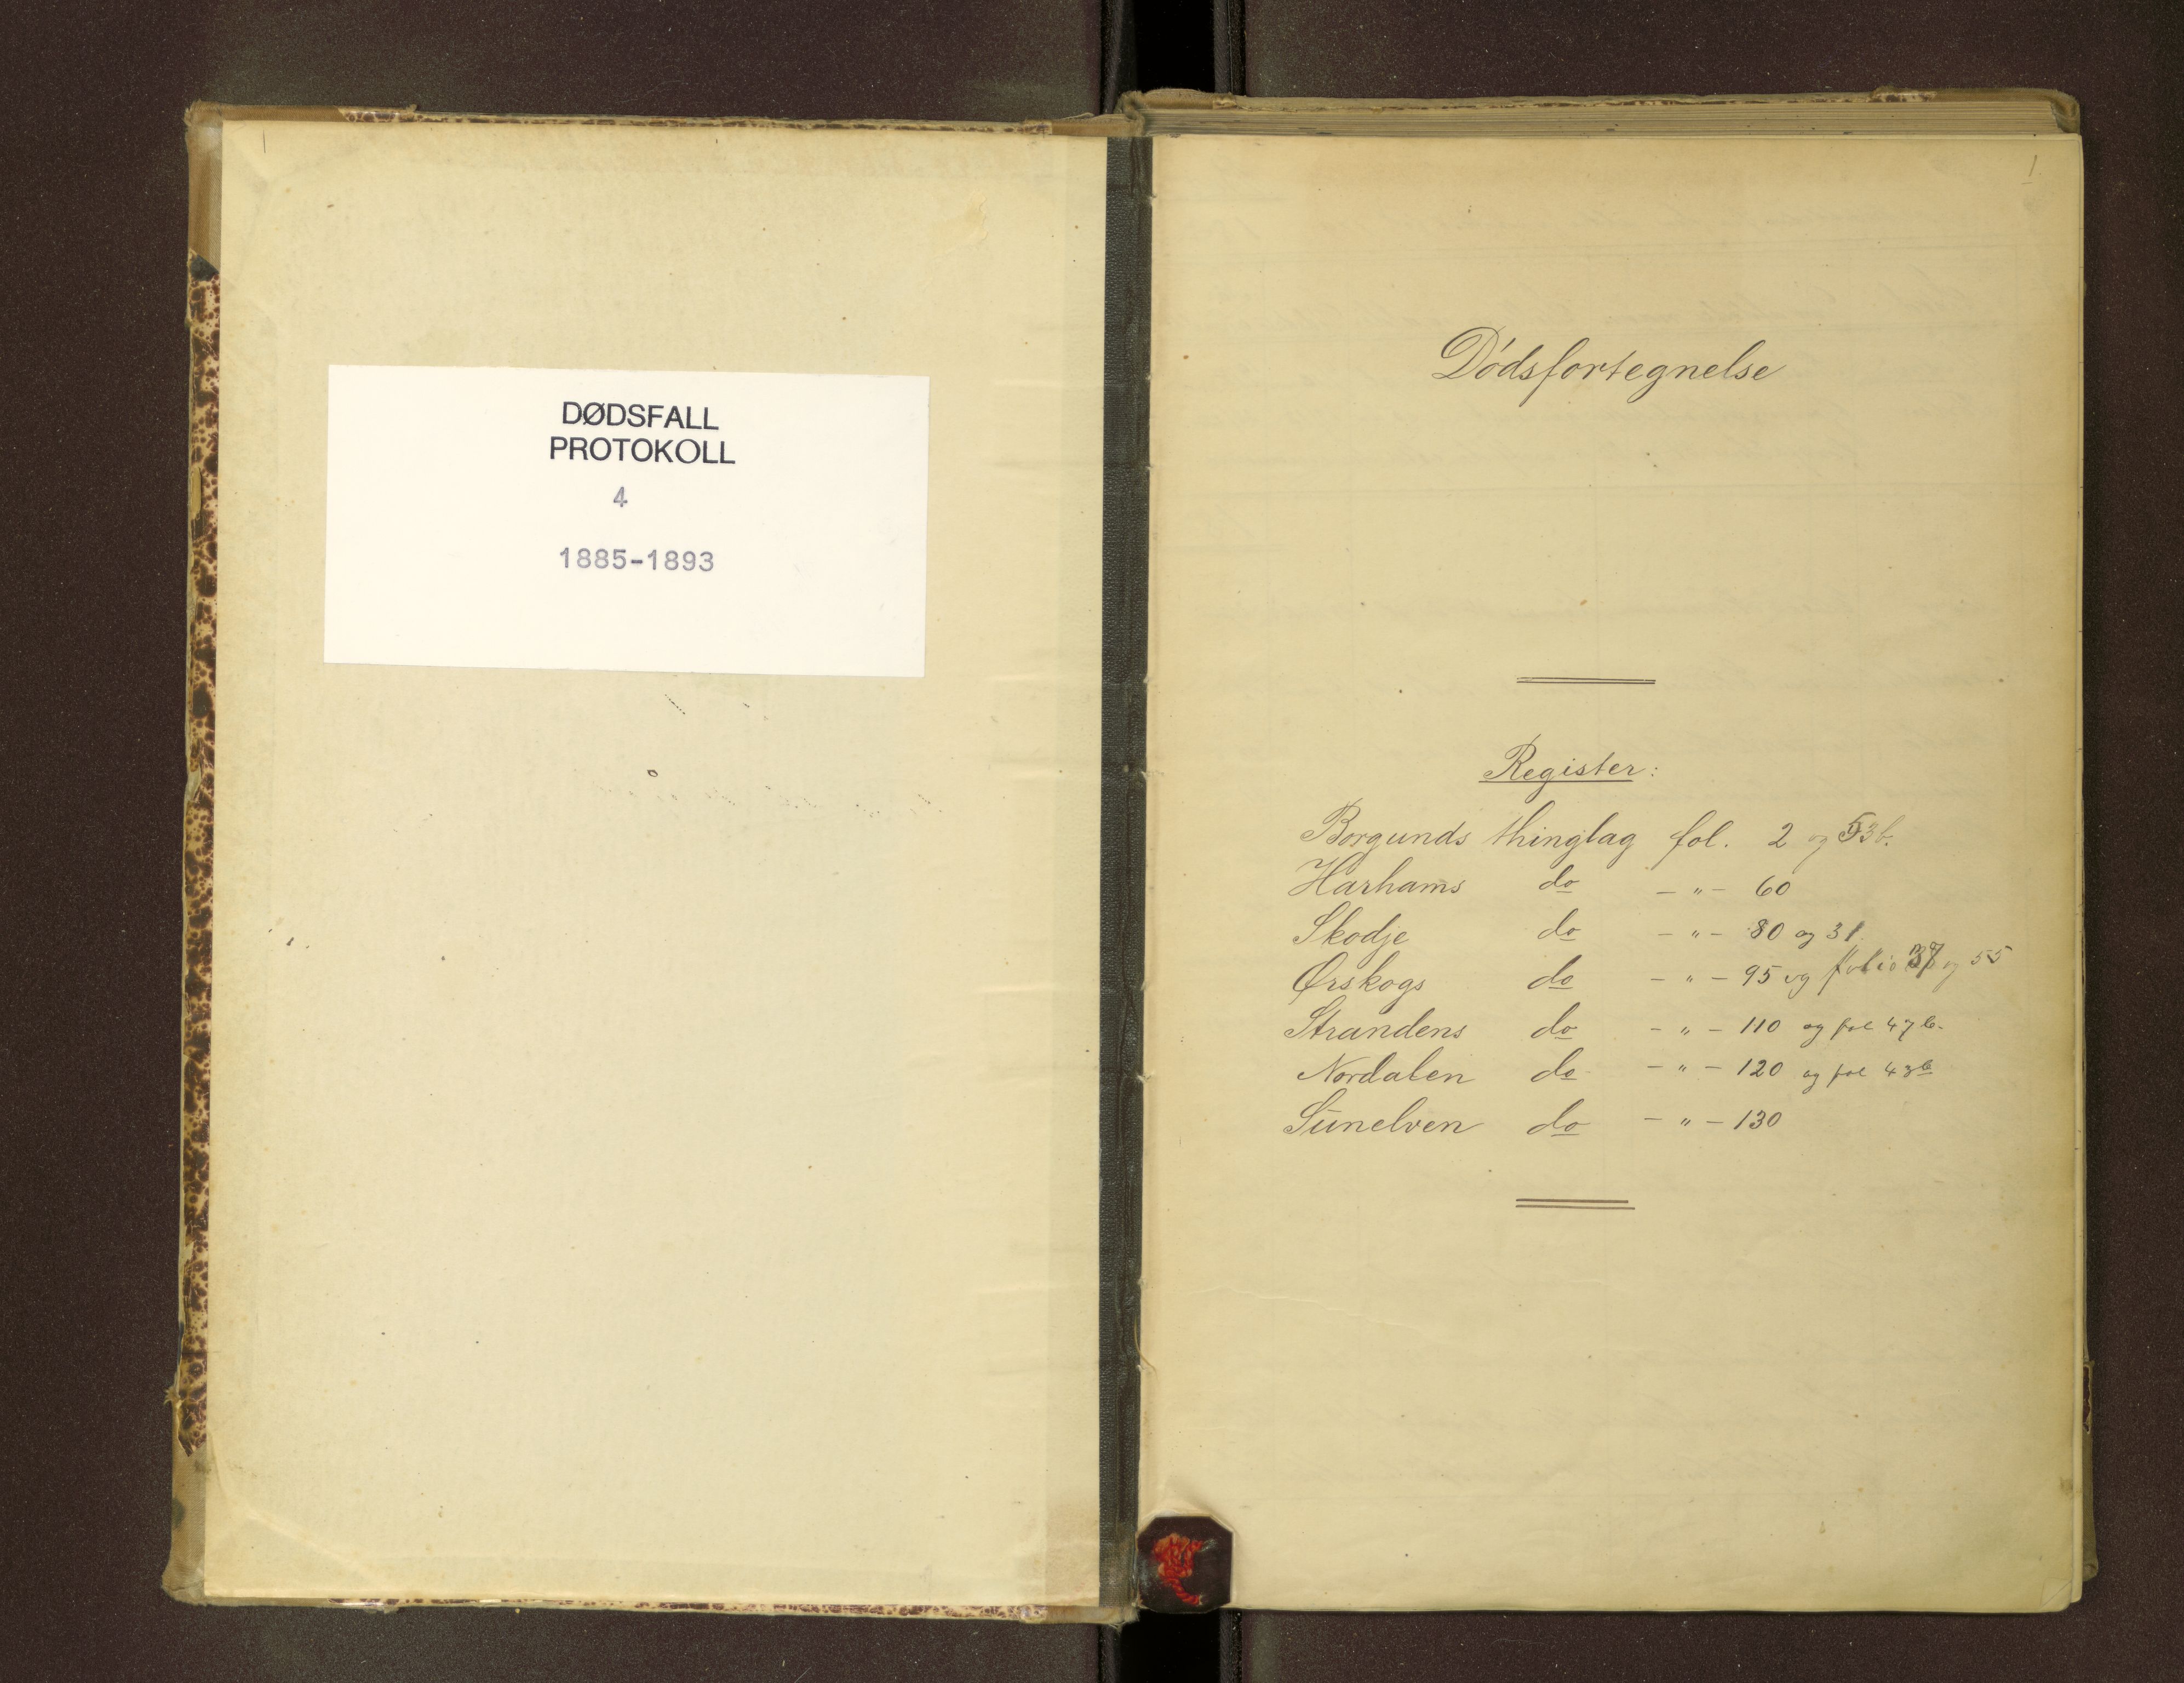 DØDSFALL
PROTOKOLL
4
1885-1893
1
Dødsfortegnelse
Register:
Borgunds thinglag fol. 2 og 53b.
Harhams do - " - 60
Skodje do - " - 80 og 31.
Ørskogs do - " - 95 og folio 37 og 55
Strandens do - " - 110 og fol 47b.
Nordalen do - " - 120 og fol 43b
Sunelven do - " - 130